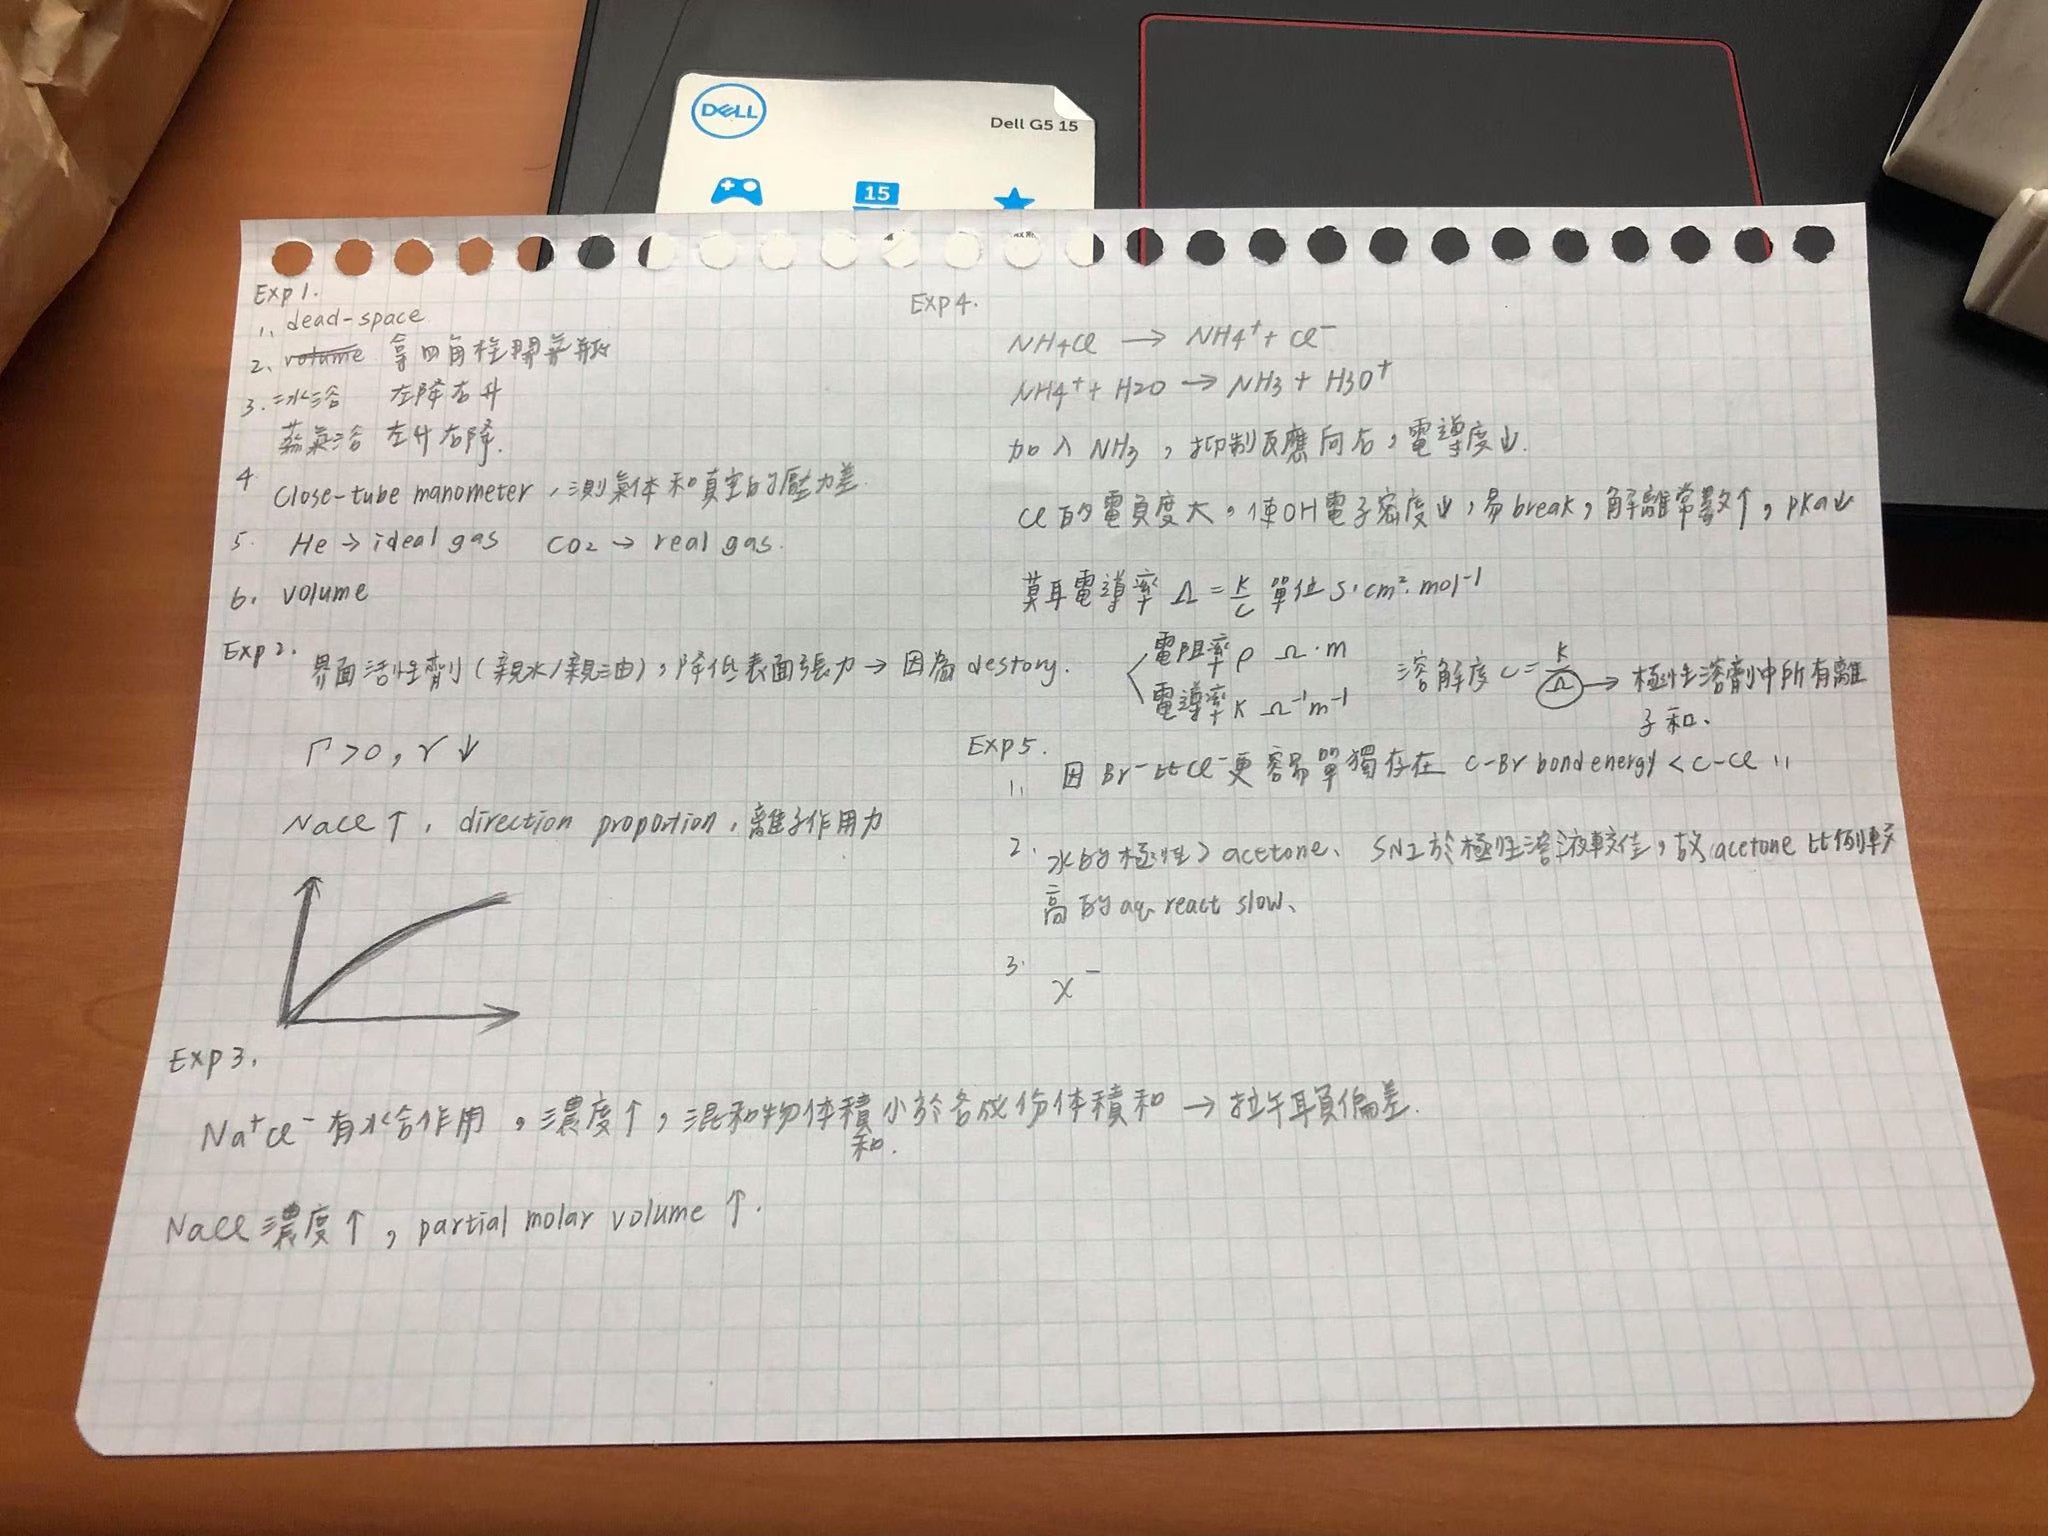 DELL
Dell G5 15
15
Exp 1.
1. dead-space
2. volume 拿四角柱
3. 水浴 左降右升
蒸氣浴 左升右降.
4 Close-tube manometer, 測氣体和真空的壓力差.
5. He → ideal gas CO2 → real gas.
6. volume
Exp 2. 界面活性劑(親水/親油), 降低表面張力 → 因為 destory.
Γ>0, γ↓
NaCl ↑, direction proportion, 離子作用力
Exp 3.
Na⁺Cl⁻有水合作用, 濃度↑, 混和物体積小於各成份体積和 → 拉午耳負偏差.
和.
NaCl 濃度↑, partial molar volume ↑.
Exp 4.
NH4Cl → NH4⁺ + Cl⁻
NH4⁺ + H2O → NH3 + H3O⁺
加入 NH3, 抑制反應向右, 電導度↓.
Cl 的電負度大, 使OH電子密度↓, 易break, 解離常數↑, pKa↓
莫耳電導率 Ω = K/C 單位 S·cm²·mol⁻¹
電阻率 ρ Ω·m
電導率 K Ω⁻¹m⁻¹
溶解度 C = K/Ω → 極性溶劑中所有離
子和.
Exp 5.
1. 因 Br⁻比Cl⁻更容易單獨存在 C-Br bond energy < C-Cl 〃
2. 水的極性 > acetone. SN2於極性溶液較佳, 故 acetone 比例較
高的 aq react slow.
3. X⁻